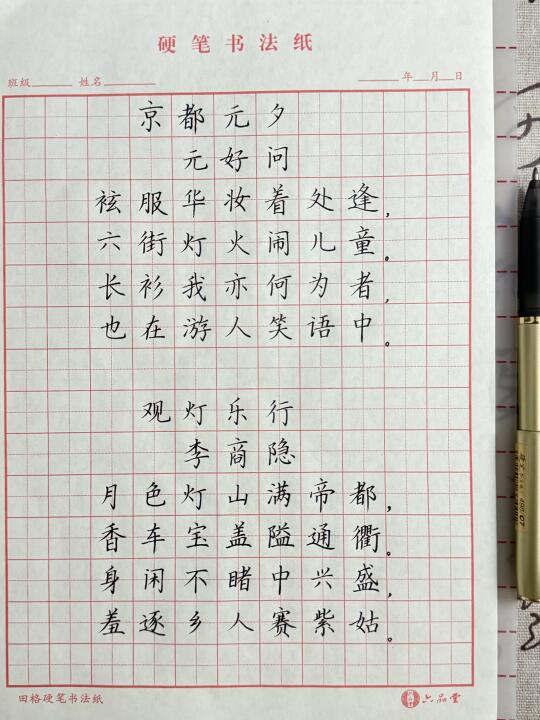 硬笔书法纸
班级 姓名 年 月 日
京都元夕
元好问
袨服华妆着处逢，
六街灯火闹儿童。
长衫我亦何为者，
也在游人笑语中。
观灯乐行
李商隐
月色灯山满帝都，
香车宝盖隘通衢。
身闲不睹中兴盛，
羞逐乡人赛紫姑。
田格硬笔书法纸 六品堂